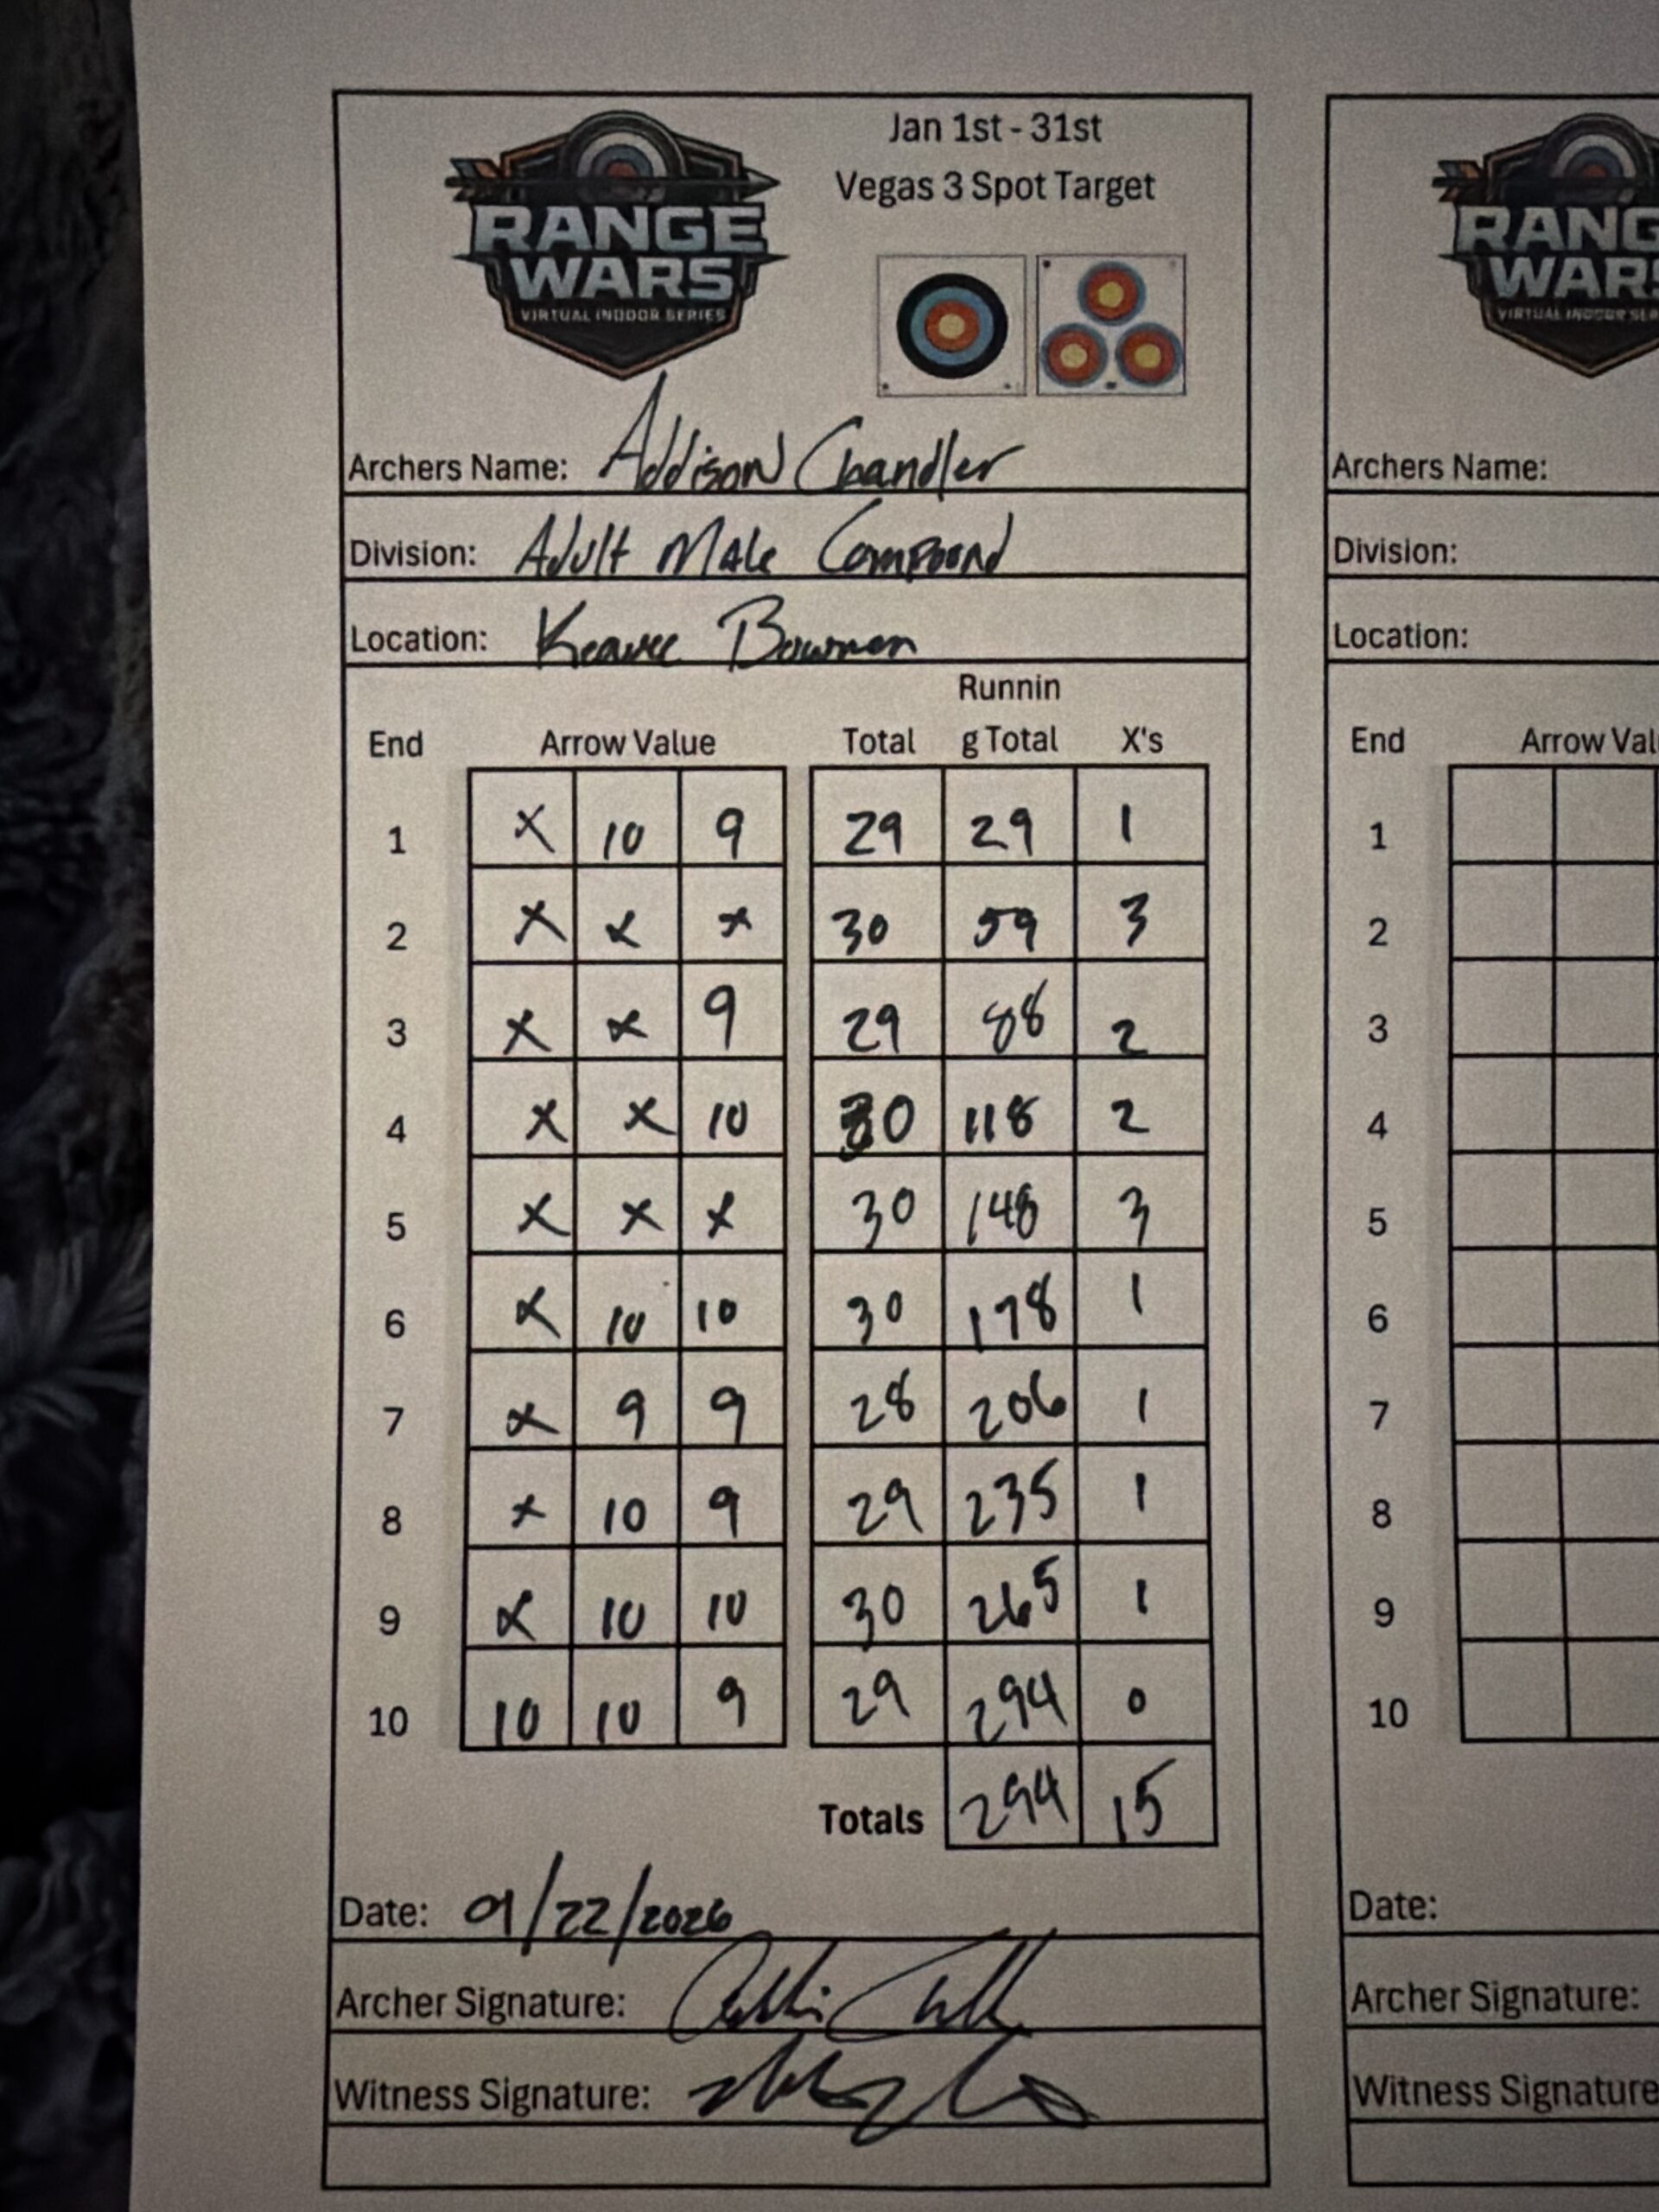 Jan 1st - 31st
Vegas 3 Spot Target
RANGE
WARS
VIRTUAL INDOOR SERIES
Archers Name: Addison Chandler
Division: Adult Male Compound
Location: Bowmen
Runnin
End Arrow Value Total g Total X's
1 X 10 9 29 29 1
2 X X X 30 59 3
3 X X 9 29 88 2
4 X X 10 30 118 2
5 X X X 30 148 3
6 X 10 10 30 178 1
7 X 9 9 28 206 1
8 X 10 9 29 235 1
9 X 10 10 30 265 1
10 10 10 9 29 294 0
Totals 294 15
Date: 9/22/2026
Archer Signature:
Witness Signature:
RANG
WARS
VIRTUAL INDOOR SER
Archers Name:
Division:
Location:
End Arrow Val
1
2
3
4
5
6
7
8
9
10
Date:
Archer Signature:
Witness Signature